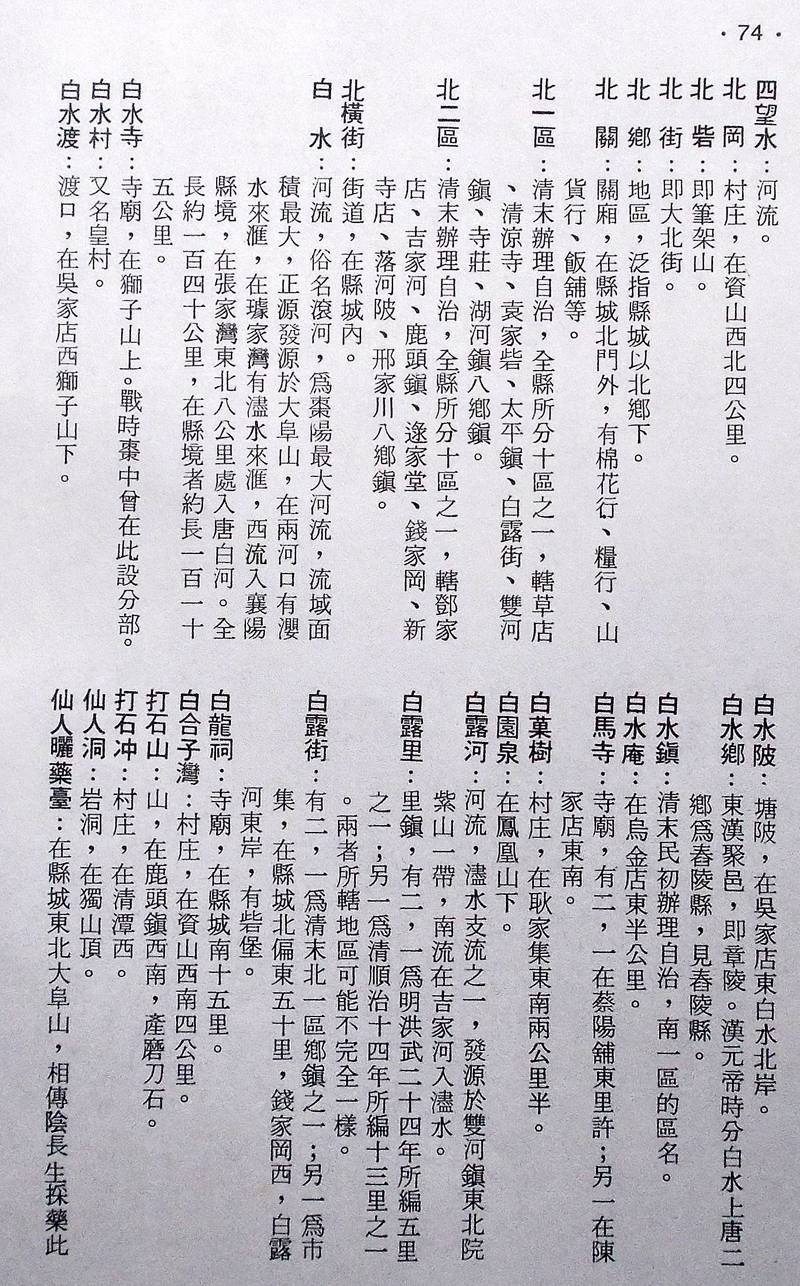 ·74·
四望水：河流。
北　岡：村庄，在資山西北四公里。
北　砦：即筆架山。
北　街：即大北街。
北　鄉：地區，泛指縣城以北鄉下。
北　關：關廂，在縣城北門外，有棉花行、糧行、山
貨行、飯舖等。
北一區：清末辦理自治，全縣所分十區之一，轄草店
、清凉寺、袁家砦、太平鎮、白露街、雙河
鎮、寺莊、湖河鎮八鄉鎮。
北二區：清末辦理自治，全縣所分十區之一，轄鄧家
店、吉家河、鹿頭鎮、逯家堂、錢家岡、新
寺店、落河陂、邢家川八鄉鎮。
北橫街：街道，在縣城內。
白　水：河流，俗名滾河，爲棗陽最大河流，流域面
積最大，正源發源於大阜山，在兩河口有瀴
水來滙，在璩家灣有濜水來滙，西流入襄陽
縣境，在張家灣東北八公里處入唐白河。全
長約一百四十公里，在縣境者約長一百一十
五公里。
白水寺：寺廟，在獅子山上。戰時棗中曾在此設分部。
白水村：又名皇村。
白水渡：渡口，在吳家店西獅子山下。
白水陂：塘陂，在吳家店東白水北岸。
白水鄉：東漢聚邑，即章陵。漢元帝時分白水上唐二
鄉爲舂陵縣，見舂陵縣。
白水鎮：清末民初辦理自治，南一區的區名。
白水庵：在烏金店東半公里。
白馬寺：寺廟，有二，一在蔡陽舖東里許；另一在陳
家店東南。
白菓樹：村庄，在耿家集東南兩公里半。
白園泉：在鳳凰山下。
白露河：河流，濜水支流之一，發源於雙河鎮東北院
紫山一帶，南流在吉家河入濜水。
白露里：里鎮，有二，一爲明洪武二十四年所編五里
之一；另一爲清順治十四年所編十三里之一
。兩者所轄地區可能不完全一樣。
白露街：有二，一爲清末北一區鄉鎮之一；另一爲市
集，在縣城北偏東五十里，錢家岡西，白露
河東岸，有砦堡。
白龍祠：寺廟，在縣城南十五里。
白合子灣：村庄，在資山西南四公里。
打石山：山，在鹿頭鎮西南，產磨刀石。
打石冲：村庄，在清潭西。
仙人洞：岩洞，在獨山頂。
仙人曬藥臺：在縣城東北大阜山，相傳陰長生採藥此